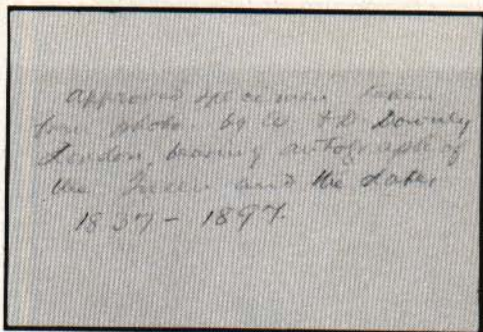 approved specimen taken
from photo. by W. & D. Downey
London, bearing autograph of
the Queen and the dates
1837 - 1897.